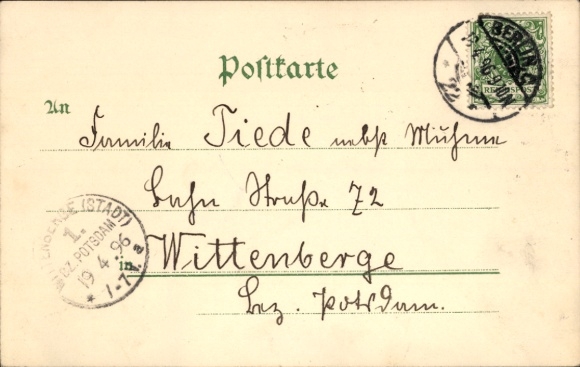 Postkarte
An
Familie Tiede nebst Muhme
Bahn Straße 72
in Wittenberge
Bez. Potsdam.
BERLIN C
22
REICHSPOST
WITTENBERGE (STADT)
1.
BZ. POTSDAM
19 4 96
* 7-